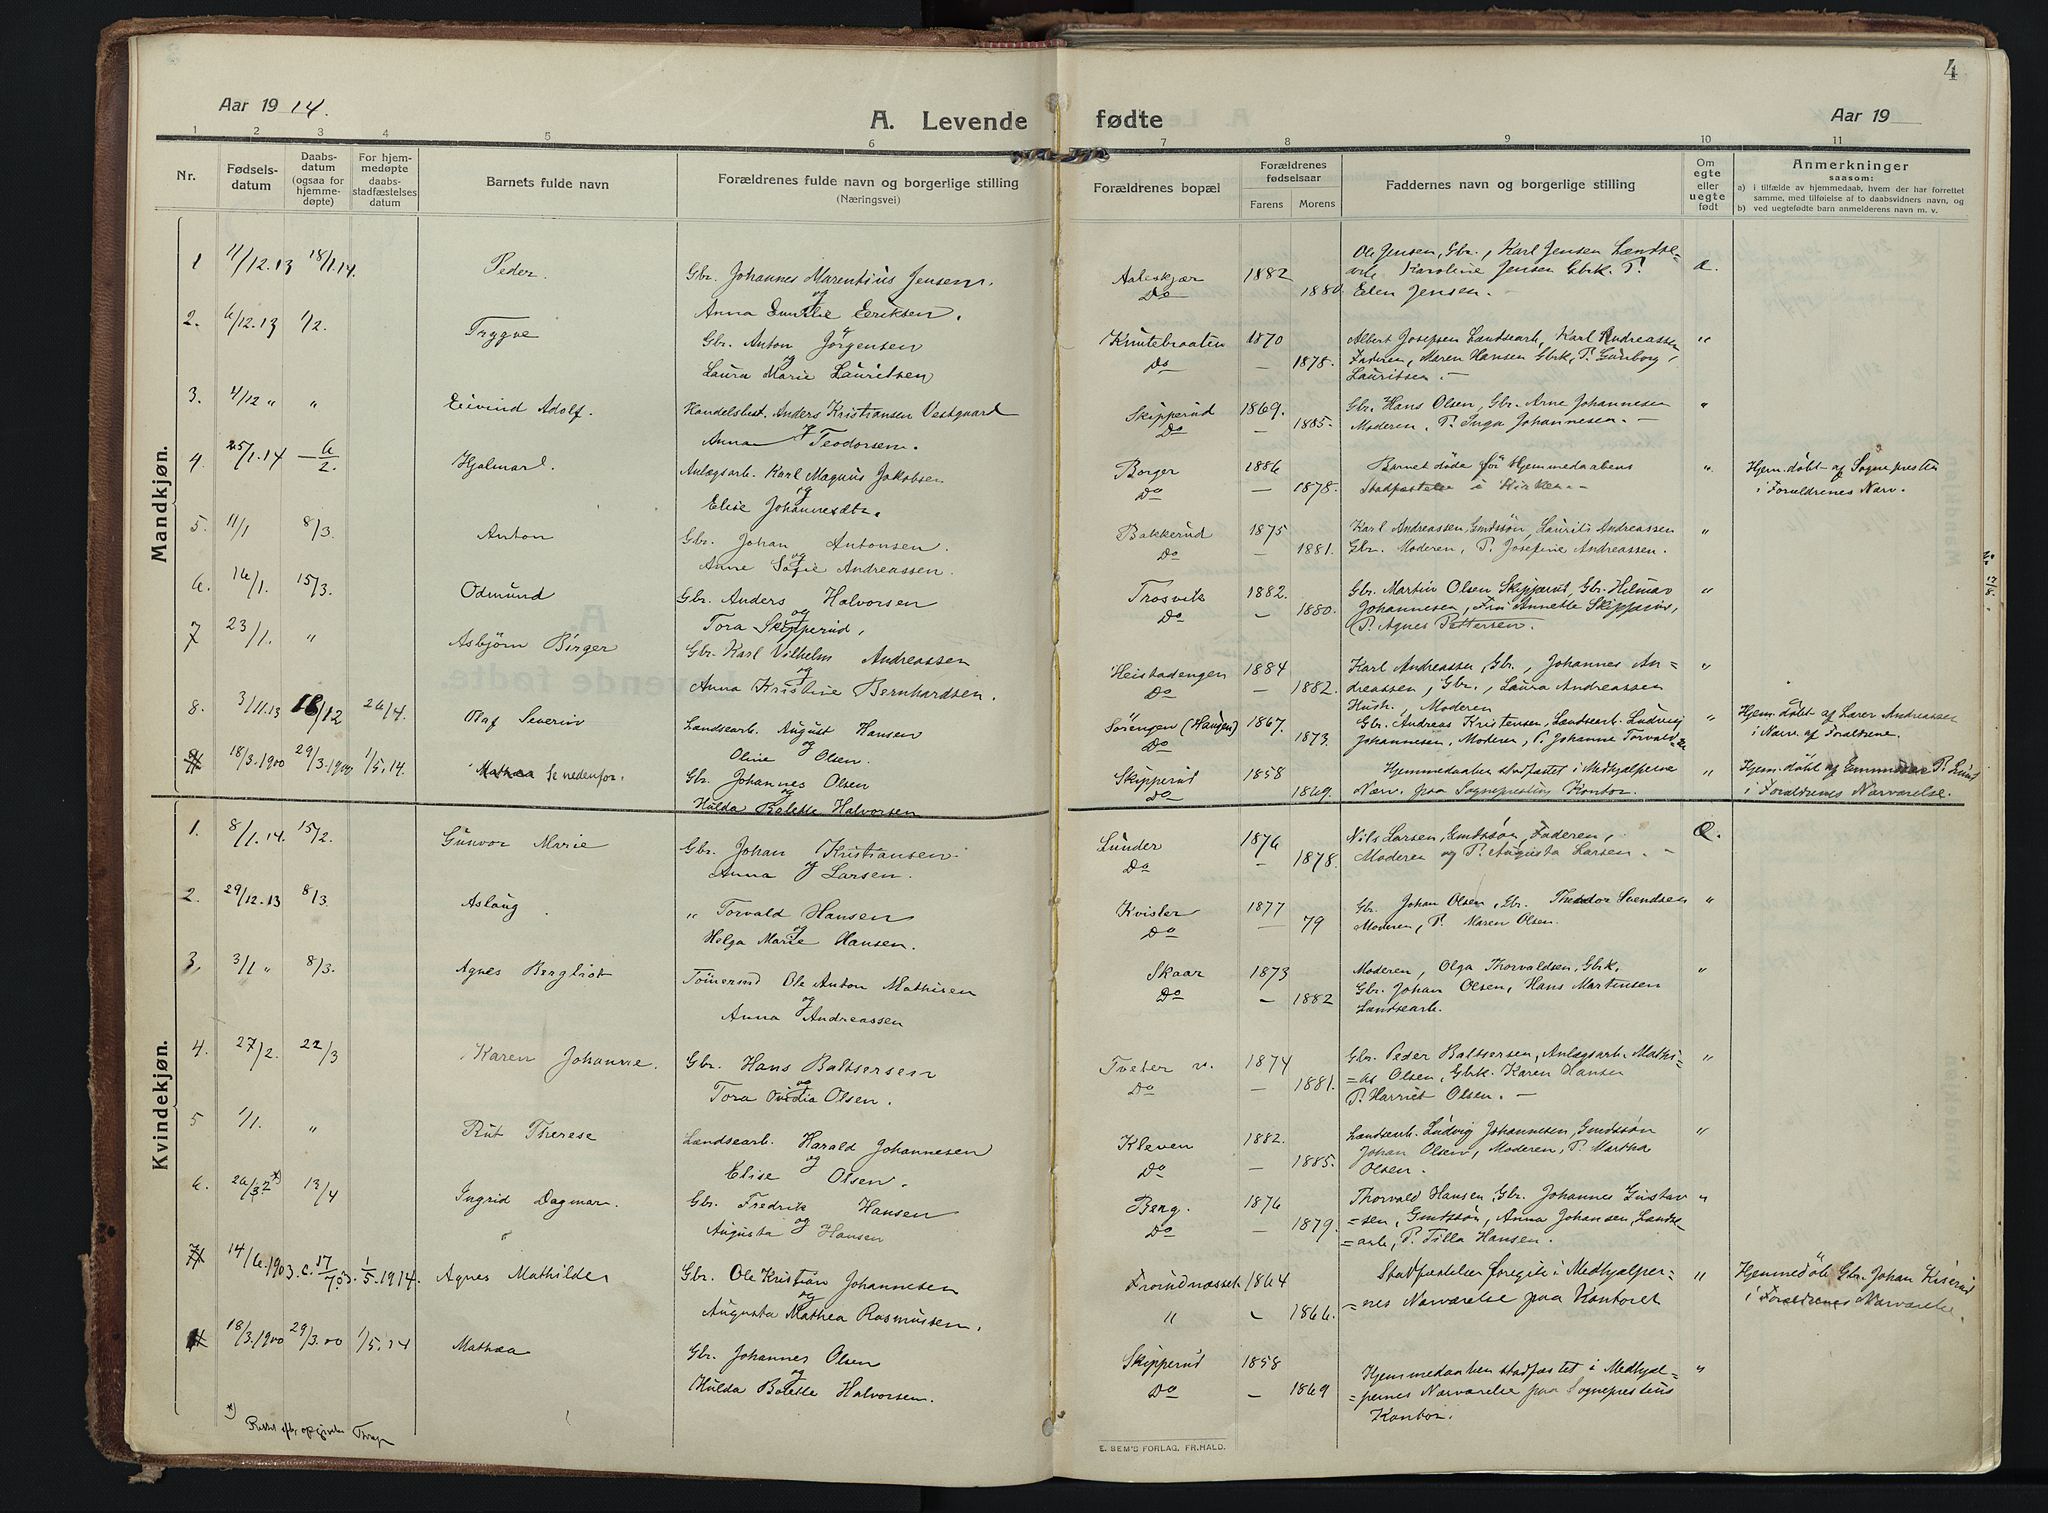 4
Aar 1914.
A. Levende fødte
Aar 19
1 2 3 4 5 6 7 8 9 10 11
Nr.
Fødsels-
datum
Daabs-
datum
(ogsaa for
hjemme-
døpte)
For hjem-
medøpte
daabs-
stadfæstelses
datum
Barnets fulde navn
Forældrenes fulde navn og borgerlige stilling
(Næringsvei)
Forældrenes bopæl
Forældrenes
fødselsaar
Farens Morens
Faddernes navn og borgerlige stilling
Om
egte
eller
uegte
født
Anmerkninger
saasom:
a) i tilfælde av hjemmedaab, hvem der har forrettet
samme, med tilføielse af to daabsvidners navn, og
b) ved uegtefødte barn anmelderens navn m. v.
Mandkjøn.
1 11/12.13 18/1.14. Peder. Gbr. Johannes Marentius Jensen.
og
Anna Emilie Eriksen.
Aaleskjær 1882
Do 1880
Ole Jensen, Gbr., Karl Jensen Landse-
arb. Karoline Jensen Gbrk. P.
Elen Jensen. –
2. 6/12.13 1/2. Trygve Gbr. Anton Jörgensen
og
Laura Marie Lauritsen
Knutebraaten 1870
Do – 1878.
Albert Josefsen Landsearb, Karl Andreassen "
Faderen, Maren Hansen Gbrk, P. Gunborg
Lauritsen. –
3. 4/12 " " Eivind Adolf. Handelsbest. Anders Kristiansen Vestgaard
og
Anna Teodorsen.
Skipperud 1869.
Do – 1885.
Gbr. Hans Olsen, Gbr. Arne Johannesen "
Moderen, P. Inga Johannesen. –
4. 25/1.14 6/2. Hjalmar Anlægsarb. Karl Magnus Jakobsen
og
Elise Johannesdtr.
Borger 1886
Do – 1878.
Barnet döde för Hjemmedaabens "
Stadfæstelse i Kirken. –
Hjem. döbt af Sogneprestен
i Forældrenes Nærv.
5. 11/1 8/3. Anton Gbr. Johan Antonsen.
og
Anne Sofie Andreassen.
Bakkerud 1875
Do – 1881.
Karl Andreassen, Gmdssön, Laurits Andreassen "
Gbr. Moderen, P. Josefine Andreassen.
6. 16/1. 15/3. Odmund Gbr. Anders Halvorsen
og
Tora Skipperud,
Trosvik 1882.
Do – 1880.
Gbr. Martin Olsen Skipperud, Gbr. Hilmar "
Johannesen, Fru Annette Skipperud,
P. Agnes Pettersen.
7 23/1. " Asbjørn Birger Gbr. Karl Vilhelm Andreassen
og
Anna Kristine Bernhardsen.
Heistadengen 1884
Do – 1882.
Karl Andreassen, Gbr., Johannes An= "
dreassen, Gbr., Laura Andreassen
Hustr., Moderen
8. 3/11.13 /12 26/4. Olaf Severin Landsearb. August Hansen
og
Oline Olsen.
Sörengen (Haugen) 1867.
Do 1873.
Gbr. Andreas Kristensen, Landsearb. Ludvig "
Johannesen, Moderen, P. Johanne Torvald
Hjem. döbt af Lærer Andreassen
i Nærv. af Forældrene.
18/3.1900 29/3.1900 1/5.14. Mathea Se nedenfor. Gbr. Johannes Olsen
og
Hulda Bolette Halvorsen
Skipperud 1858
Do 1869.
Hjemmedaaben stadfæstet i Medhjælperne "
Nærv. paa Sogneprestens Kontor.
Hjem. döbt af P. Lund
i Forældrenes Nærværelse.
Kvindekjøn.
1. 8/1.14. 15/2. Gunvor Marie Gbr. Johan Kristiansen
og
Anna Larsen.
Lunder 1876
Do – 1878.
Nils Larsen, Gmdssön, Faderen,
Moderen og P. Augusta Larsen. –
2. 29/12.13 8/3. Aslaug. " Torvald Hansen
og
Helga Marie Hansen.
Kvister 1877
Do – 79
Gbr. Johan Olsen, Gbr. Theodor Svendsen "
Moderen, P. Maren Olsen.
3. 3/1 " 8/3. Agnes Bergliot Tömermd Ole Anton Mathisen
og
Anna Andreassen
Skaar 1873
Do – 1882
Moderen, Olga Thorvaldsen, Gbrk. "
Gbr. Johan Olsen, Hans Martinsen
Landsearb.
4. 27/2. 22/3 Karen Johanne. Gbr. Hans Baltsersen
og
Tora Ovedia Olsen.
Tveter n. 1874
Do – 1881.
Gbr. Peder Baltsersen, Anlægsarb. Mathi= "
=as Olsen, Gbrk. Karen Hansen
P. Harriet Olsen. –
5 1/1. " Rut Therese Landsearb. Harald Johannesen
og
Elise Olsen.
Kleven 1882.
Do – 1885.
Landsearb. Ludvig Johannesen, Gmdssön "
Johan Olsen, Moderen, P. Martha
Olsen.
6. 26/3 *) 13/4 Ingrid Dagmar. Gbr. Fredrik Hansen
og
Augusta Hansen
Berg. 1876
Do – 1879.
Thorvald Hansen, Gbr. Johannes Gustav "
=sen, Gmdssön, Anna Johansen, Landse
=arb, P. Tilla Hansen.
7 14/6.1903. c. 17/7 03. 1/5.1914. Agnes Mathilde Gbr. Ole Kristian Johannesen
og
Augusta Mathea Rasmussen.
1864
" – 1866.
Stadfæstelsen foregik i Medhjælper= "
=nes Nærværelse paa Kontoret
Hjemmedöbt Gbr. Johan Kiserud
i Forældrenes Nærværelse.
18/3.1900 29/3.00 1/5.14 Mathea Gbr. Johannes Olsen
og
Hulda Bolette Halvorsen.
Skipperud 1858
Do – 1869
Hjemmedaaben stadfæstet i Medhjæl= "
=pernes Nærværelse paa Sogneprestens
Kontor.
*) Rettet efter
E. SEM'S FORLAG, FR.HALD.